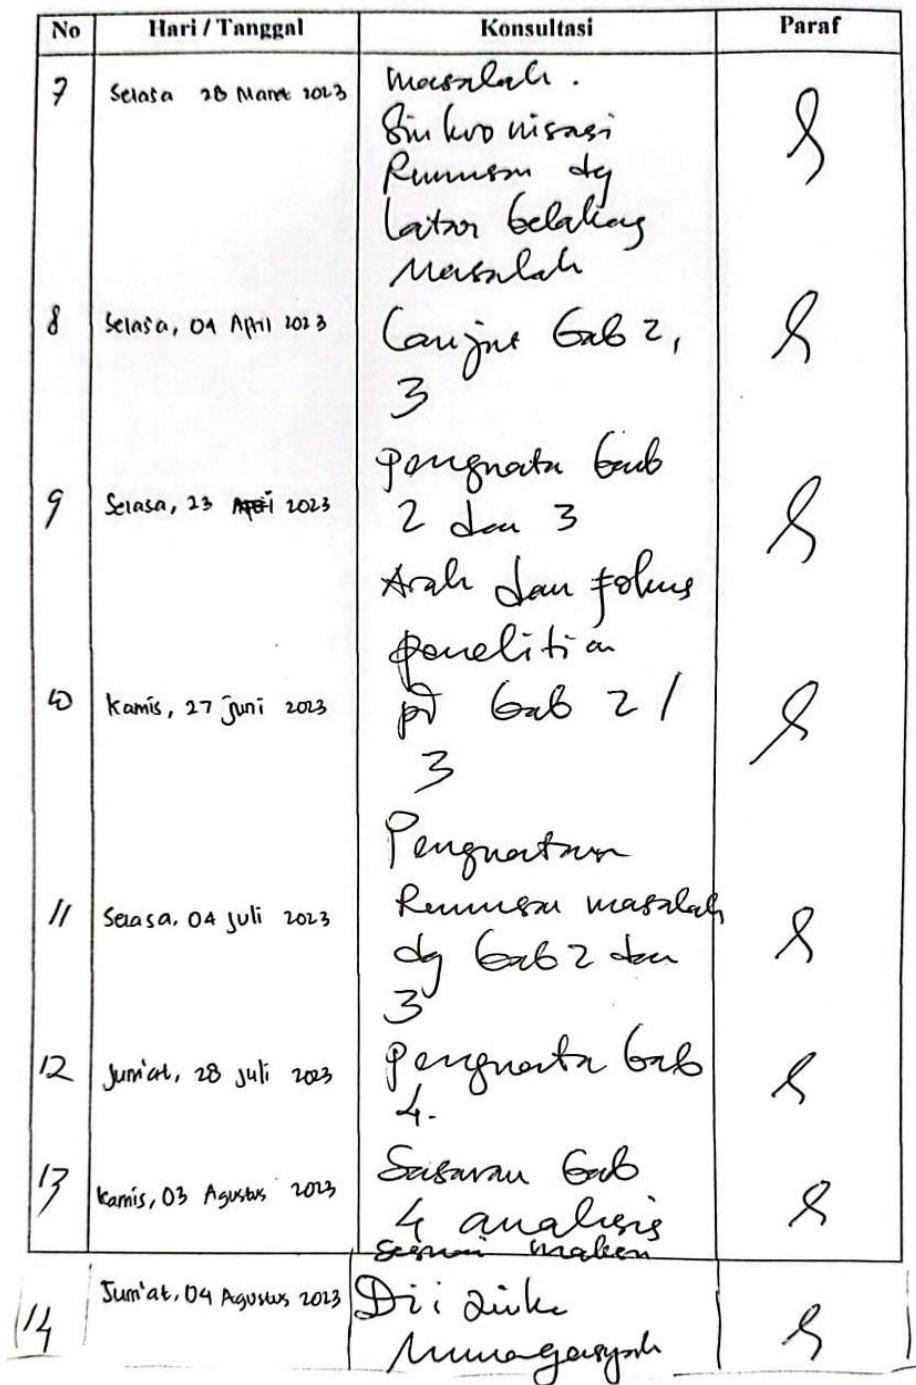 No Hari / Tanggal Konsultasi Paraf
7 Selasa 28 Maret 2023 masalah.
Sinkronisasi
Rumusan dg
latar belakang
Masalah
8 Selasa, 04 April 2023 Lanjut bab 2,
3
penguata bab
9 Selasa, 23 2023 2 dan 3
Arah dan fokus
penelitian
10 Kamis, 27 Juni 2023 pd bab 2 /
3
Penguatan
11 Selasa, 04 Juli 2023 Rumusan masalah
dg bab 2 dan
3
12 Jum'at, 28 Juli 2023 penguata bab
4.
13 Kamis, 03 Agustus 2023 Sasaran bab
4 analisis
sesuai
14 Jum'at, 04 Agustus 2023 Dii zinke
Munaqasyah